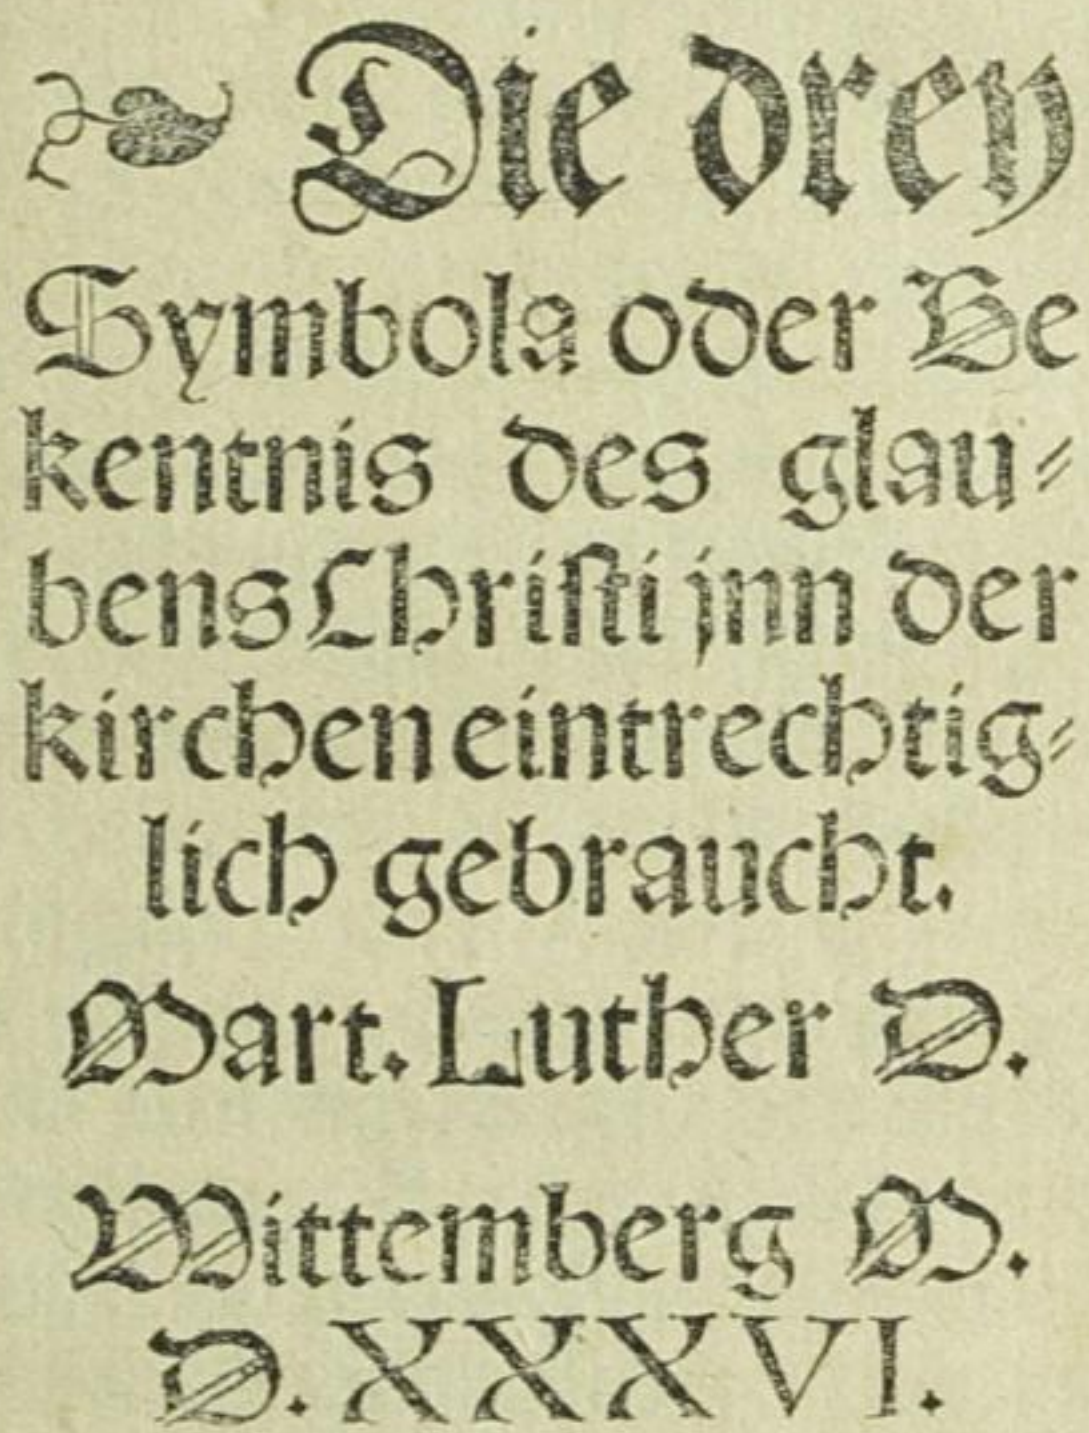 ❧ Die drey
Symbola oder Be
kentnis des glau⸗
bens Christi jnn der
kirchen eintrechtig⸗
lich gebraucht.
Mart. Luther D.
Wittemberg M.
D. XXXVI.